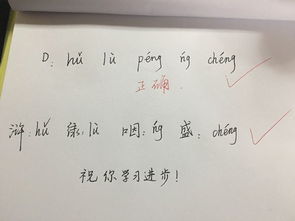 D: hǔ lù péng ńg chéng
正确
浒:hǔ 绿:lù 咽:ńg 盛:chéng
祝你学习进步!